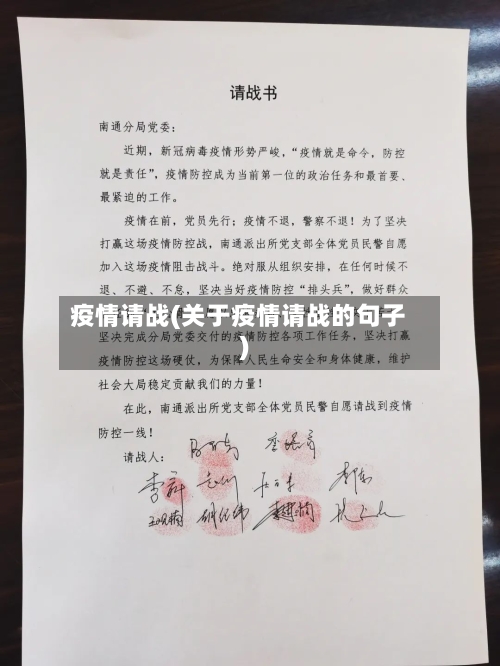 请战书
南通分局党委：
近期，新冠病毒疫情形势严峻，“疫情就是命令，防控
就是责任”，疫情防控成为当前第一位的政治任务和最首要、
最紧迫的工作。
疫情在前，党员先行；疫情不退，警察不退！为了坚决
打赢这场疫情防控战，南通派出所党支部全体党员民警自愿
加入这场疫情阻击战斗。绝对服从组织安排，在任何时候不
退、不避、不怠，坚决当好疫情防控“排头兵”，做好群众
疫情请战(关于疫情请战的句子
)
坚决完成分局党委交付的疫情防控各项工作任务，坚决打赢
疫情防控这场硬仗，为保障人民生命安全和身体健康，维护
社会大局稳定贡献我们的力量！
在此，南通派出所党支部全体党员民警自愿请战到疫情
防控一线！
请战人：